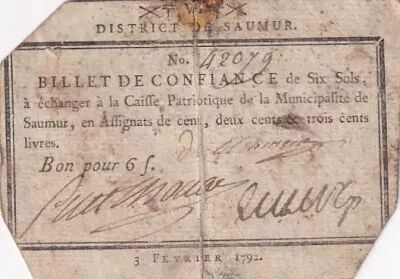 DISTRICT DE SAUMUR.
No. 42079
BILLET DE CONFIANCE de Six Sols,
à échanger à la Caiſſe Patriotique de la Municipalité de
Saumur, en Aſſignats de cent, deux cents & trois cents
livres.
Bon pour 6 ſ.
3 FÉVRIER 1792.